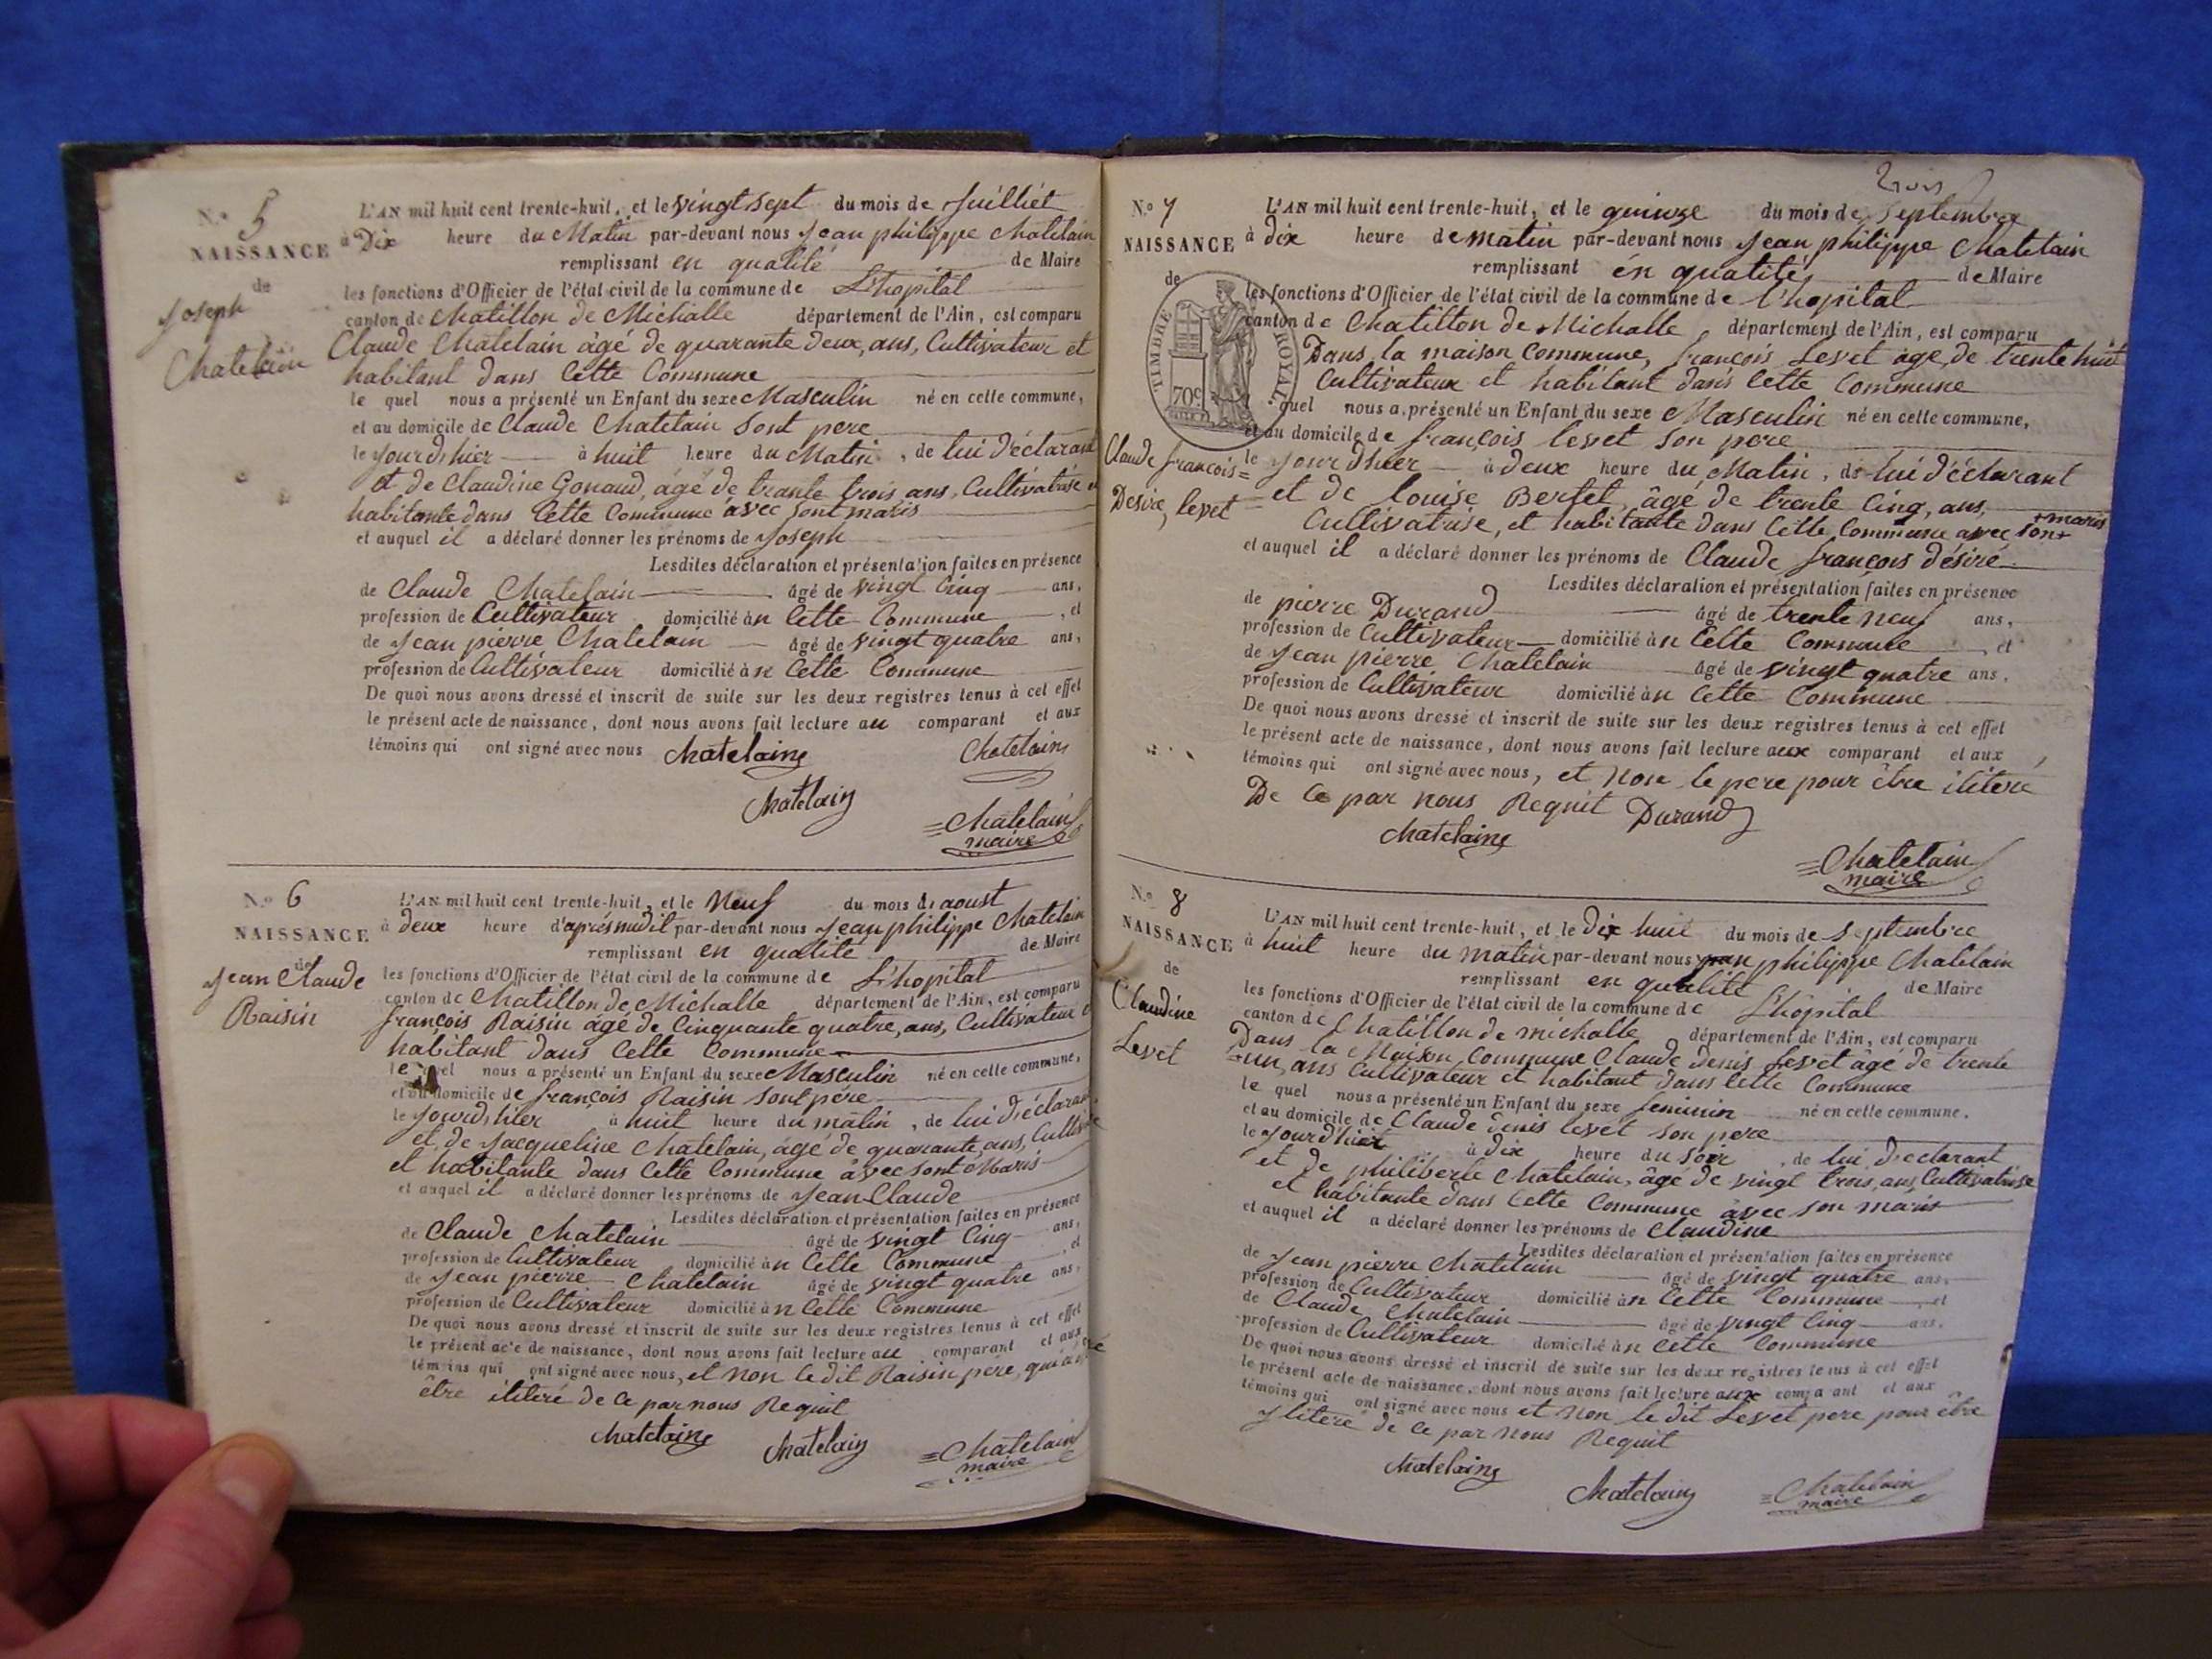 N.º 5
NAISSANCE
de
Joseph
Chatelain
L'AN mil huit cent trente-huit, et le vingt sept du mois de Juilliet
à Dix heure du Matin par-devant nous Jean philippe Chatelain
remplissant en qualité de Maire
les fonctions d'Officier de l'état civil de la commune de L'hopital
canton de Chatillon de Michalle département de l'Ain, est comparu
Claude Chatelain âgé de quarante deux, ans, Cultivateur et
habitant dans Cette Commune
le quel nous a présenté un Enfant du sexe Masculin né en cette commune,
et au domicile de Claude Chatelain Sont pere
le jourdhier à huit heure du Matin, de lui déclarant
et de Claudine Gonaud, âgé de trante trois ans, Cultivatrise et
habitante dans Cette Commune avec sont maris
et auquel il a déclaré donner les prénoms de Joseph
Lesdites déclaration et présentation faites en présence
de Claude Chatelain âgé de vingt Cinq ans,
profession de Cultivateur domicilié àn Cette Commune, et
de Jean pierre Chatelain âgé de vingt quatre ans,
profession de Cultivateur domicilié àn Cette Commune
De quoi nous avons dressé et inscrit de suite sur les deux registres tenus à cet effet
le présent acte de naissance, dont nous avons fait lecture au comparant et aux
témoins qui ont signé avec nous Chatelaine Chatelain
Chatelain
Chatelain
maire
N.º 6
NAISSANCE
de
Jean Claude
Raisin
L'AN mil huit cent trente-huit, et le Neuf du mois de aoust
à deux heure d'aprésmidit par-devant nous Jean philippe Chatelain
remplissant en qualité de Maire
les fonctions d'Officier de l'état civil de la commune de L'hopital
canton de Chatillon de Michalle département de l'Ain, est comparu
françois Raisin âgé de Cinquante quatre, ans, Cultivateur
habitant dans Cette Commune
le quel nous a présenté un Enfant du sexe Masculin né en cette commune,
et au domicile de françois Raisin sont pere
le jourdhier à huit heure du matin, de lui déclarant
et de Jacqueline Chatelain, âgé de quarante, ans,
et habitante dans Cette Commune avec sont Maris
et auquel il a déclaré donner les prénoms de Jean-Claude
Lesdites déclaration et présentation faites en présence
de Claude Chatelain âgé de vingt Cinq ans,
profession de Cultivateur domicilié àn Cette Commune, et
de Jean pierre Chatelain âgé de vingt quatre ans,
profession de Cultivateur domicilié àn Cette Commune
De quoi nous avons dressé et inscrit de suite sur les deux registres tenus à cet effet
le présent acte de naissance, dont nous avons fait lecture au comparant et aux
témoins qui ont signé avec nous, et non le dit Raisin pere,
être iliteré de ce par nous Requit
Chatelaine Chatelain Chatelain
maire
trois
N.º 7
NAISSANCE
de
TIMBRE ROYAL
70c
Claude françois=
Desire, levet
L'AN mil huit cent trente-huit, et le quinze du mois de Septembre
à dix heure de matin par-devant nous Jean philippe Chatelain
remplissant en qualité de Maire
les fonctions d'Officier de l'état civil de la commune de l'hopital
canton de Chatillon de Michalle, département de l'Ain, est comparu
Dans la maison Commune, françois Levet âgé, de trente huit
Cultivateur et habitant dans Cette Commune
quel nous a présenté un Enfant du sexe Masculin né en cette commune,
et au domicile de françois levet son pere
le jourdhier à deux heure du Matin, de lui déclarant
et de louise Bertet, âgé de trente Cinq, ans,
Cultivatrise, et habitante dans Cette Commune avec son+ +maris
et auquel il a déclaré donner les prénoms de Claude françois désiré
Lesdites déclaration et présentation faites en présence
de pierre Durand âgé de trente neuf ans,
profession de Cultivateur domicilié àn Cette Commune, et
de Jean pierre Chatelain âgé de vingt quatre ans,
profession de Cultivateur domicilié àn Cette Commune
De quoi nous avons dressé et inscrit de suite sur les deux registres tenus à cet effet
le présent acte de naissance, dont nous avons fait lecture aux comparant et aux
témoins qui ont signé avec nous, et non le pere pour être ilitere
De Ce par nous Requit Durand
Chatelaine
Chatelain
maire
N.º 8
NAISSANCE
de
Claudine
Levet
L'AN mil huit cent trente-huit, et le Dix huit du mois de Septembre
à huit heure du matin par-devant nous philippe Chatelain
remplissant en qualité de Maire
les fonctions d'Officier de l'état civil de la commune de L'hopital
canton de Chatillon de michalle département de l'Ain, est comparu
Dans la Maison Commune Claude denis Levet âgé de trente
=un, ans Cultivateur et habitant dans Cette Commune
le quel nous a présenté un Enfant du sexe feminin né en cette commune.
et au domicile de Claude denis levet son pere
le jourdhier à dix heure du soir, de lui declarant
et de philiberte Chatelain, âgé de vingt trois, ans, Cultivatrise
et habitante dans Cette Commune avec son maris
et auquel il a déclaré donner les prénoms de Claudine
Lesdites déclaration et présentation faites en présence
de Jean pierre Chatelain âgé de vingt quatre ans,
profession de Cultivateur domicilié àn Cette Commune et
de Claude Chatelain âgé de vingt Cinq ans,
profession de Cultivateur domicilié àn Cette Commune
De quoi nous avons dressé et inscrit de suite sur les deux registres tenus à cet effet
le présent acte de naissance, dont nous avons fait lecture aux comparant et aux
témoins qui ont signé avec nous et non le dit Levet pere pour être
yliteré de ce par nous Requit
Chatelaine Chatelain Chatelain
maire